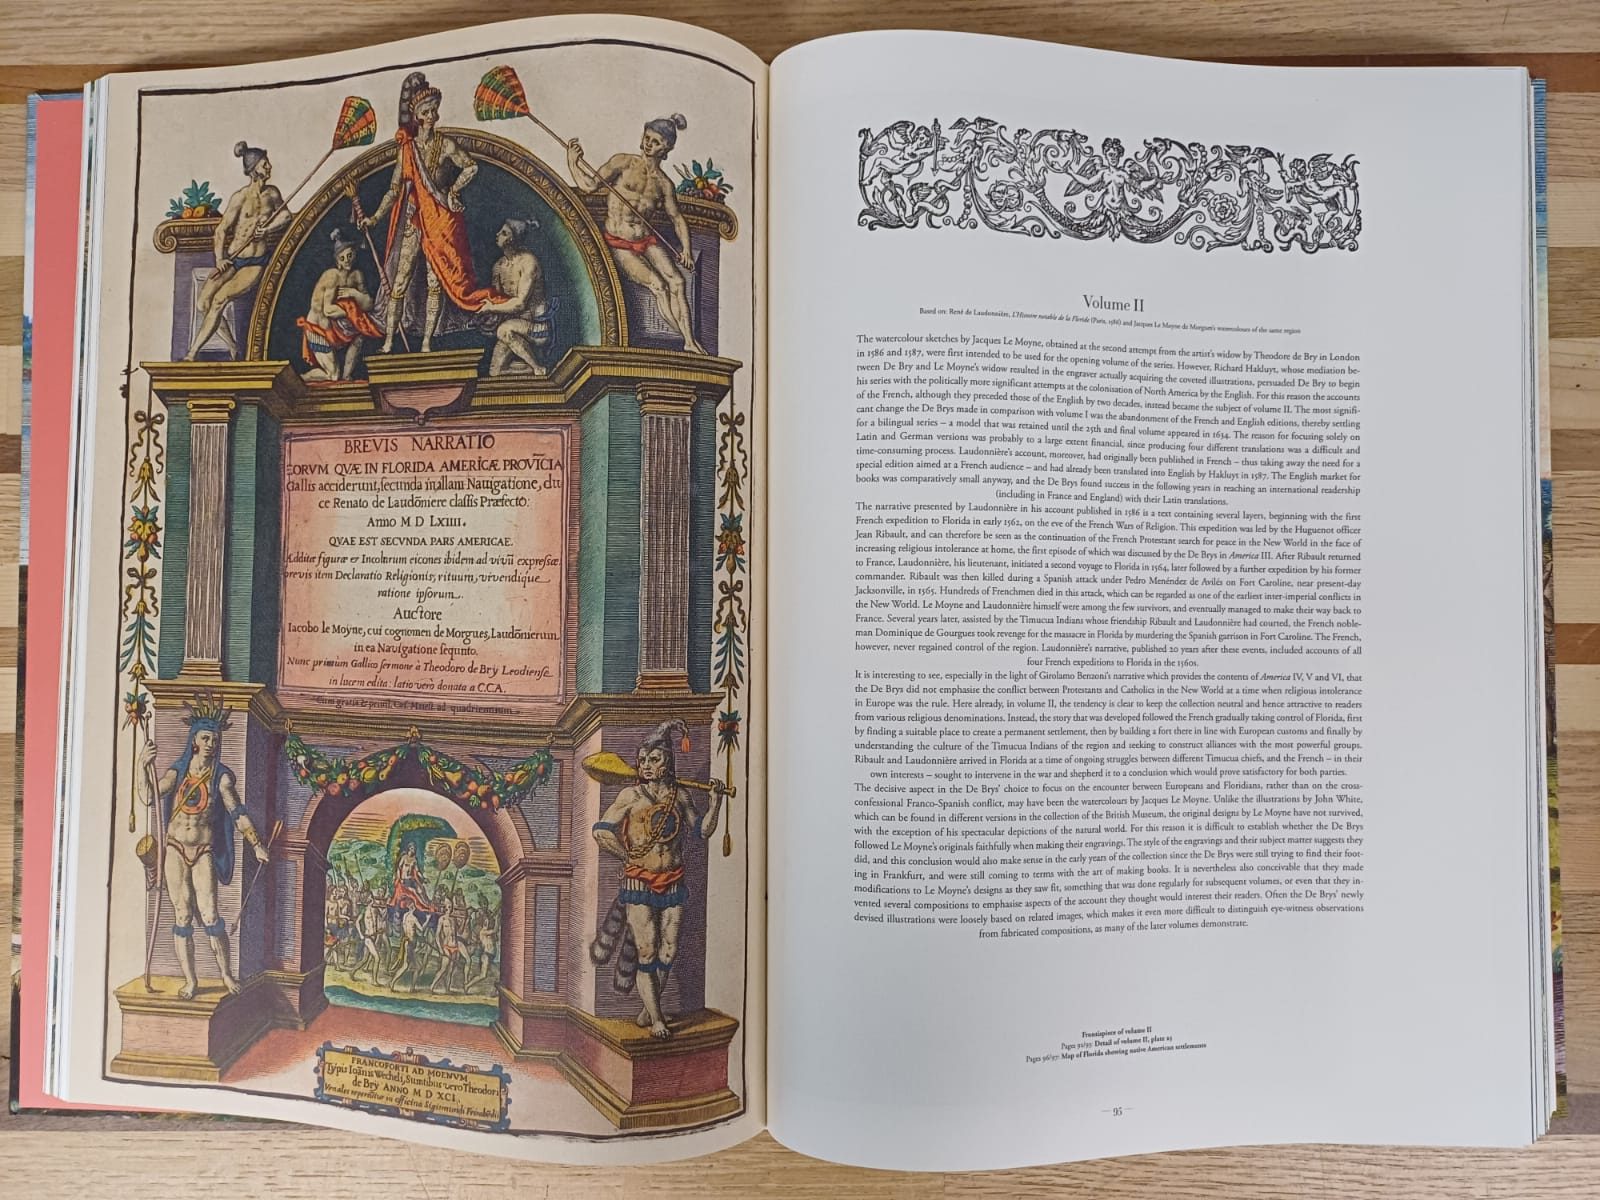 BREVIS NARRATIO
EORVM QVÆ IN FLORIDA AMERICÆ PROVĪCIA
Gallis acciderunt, secunda in illam Nauigatione, du
ce Renato de Laudōniere classis Præfecto:
Anno M D LXIIII.
QVAE EST SECVNDA PARS AMERICAE.
Additæ figuræ et Incolarum eicones ibidem ad vivū expressæ
brevis item Declaratio Religionis, rituum, vivendique
ratione ipsorum.
Auctore
Iacobo le Moyne, cui cognomen de Morgues, Laudōnierum
in ea Navigatione sequnto.
Nunc primùm Gallico sermone à Theodoro de Bry Leodiense
in lucem edita: latio verò donata a C.C.A.
Cum gratia & priuil. Cæs. Maiest. ad quadriennium.
FRANCOFORTI AD MOENVM
Typis Ioānis Wecheli, Sumtibus vero Theodori
de Bry ANNO M D XCI.
Venales reperiūtur in officina Sigismundi Feirabēdii
Volume II
Based on: René de Laudonnière, L'Histoire notable de la Floride (Paris, 1586) and Jacques Le Moyne de Morgues's watercolours of the same region
The watercolour sketches by Jacques Le Moyne, obtained at the second attempt from the artist's widow by Theodore de Bry in London
in 1586 and 1587, were first intended to be used for the opening volume of the series. However, Richard Hakluyt, whose mediation be-
tween De Bry and Le Moyne's widow resulted in the engraver actually acquiring the coveted illustrations, persuaded De Bry to begin
his series with the politically more significant attempts at the colonisation of North America by the English. For this reason the accounts
of the French, although they preceded those of the English by two decades, instead became the subject of volume II. The most signifi-
cant change the De Brys made in comparison with volume I was the abandonment of the French and English editions, thereby settling
for a bilingual series – a model that was retained until the 25th and final volume appeared in 1634. The reason for focusing solely on
Latin and German versions was probably to a large extent financial, since producing four different translations was a difficult and
time-consuming process. Laudonnière's account, moreover, had originally been published in French – thus taking away the need for a
special edition aimed at a French audience – and had already been translated into English by Hakluyt in 1587. The English market for
books was comparatively small anyway, and the De Brys found success in the following years in reaching an international readership
(including in France and England) with their Latin translations.
The narrative presented by Laudonnière in his account published in 1586 is a text containing several layers, beginning with the first
French expedition to Florida in early 1562, on the eve of the French Wars of Religion. This expedition was led by the Huguenot officer
Jean Ribault, and can therefore be seen as the continuation of the French Protestant search for peace in the New World in the face of
increasing religious intolerance at home, the first episode of which was discussed by the De Brys in America III. After Ribault returned
to France, Laudonnière, his lieutenant, initiated a second voyage to Florida in 1564, later followed by a further expedition by his former
commander. Ribault was then killed during a Spanish attack under Pedro Menéndez de Avilés on Fort Caroline, near present-day
Jacksonville, in 1565. Hundreds of Frenchmen died in this attack, which can be regarded as one of the earliest inter-imperial conflicts in
the New World. Le Moyne and Laudonnière himself were among the few survivors, and eventually managed to make their way back to
France. Several years later, assisted by the Timucua Indians whose friendship Ribault and Laudonnière had courted, the French noble-
man Dominique de Gourgues took revenge for the massacre in Florida by murdering the Spanish garrison in Fort Caroline. The French,
however, never regained control of the region. Laudonnière's narrative, published 20 years after these events, included accounts of all
four French expeditions to Florida in the 1560s.
It is interesting to see, especially in the light of Girolamo Benzoni's narrative which provides the contents of America IV, V and VI, that
the De Brys did not emphasise the conflict between Protestants and Catholics in the New World at a time when religious intolerance
in Europe was the rule. Here already, in volume II, the tendency is clear to keep the collection neutral and hence attractive to readers
from various religious denominations. Instead, the story that was developed followed the French gradually taking control of Florida, first
by finding a suitable place to create a permanent settlement, then by building a fort there in line with European customs and finally by
understanding the culture of the Timucua Indians of the region and seeking to construct alliances with the most powerful groups.
Ribault and Laudonnière arrived in Florida at a time of ongoing struggles between different Timucua chiefs, and the French – in their
own interests – sought to intervene in the war and shepherd it to a conclusion which would prove satisfactory for both parties.
The decisive aspect in the De Brys' choice to focus on the encounter between Europeans and Floridians, rather than on the cross-
confessional Franco-Spanish conflict, may have been the watercolours by Jacques Le Moyne. Unlike the illustrations by John White,
which can be found in different versions in the collection of the British Museum, the original designs by Le Moyne have not survived,
with the exception of his spectacular depictions of the natural world. For this reason it is difficult to establish whether the De Brys
followed Le Moyne's originals faithfully when making their engravings. The style of the engravings and their subject matter suggests they
did, and this conclusion would also make sense in the early years of the collection since the De Brys were still trying to find their foot-
ing in Frankfurt, and were still coming to terms with the art of making books. It is nevertheless also conceivable that they made
modifications to Le Moyne's designs as they saw fit, something that was done regularly for subsequent volumes, or even that they in-
vented several compositions to emphasise aspects of the account they thought would interest their readers. Often the De Brys' newly
devised illustrations were loosely based on related images, which makes it even more difficult to distinguish eye-witness observations
from fabricated compositions, as many of the later volumes demonstrate.
Frontispiece of volume II
Pages 92/93: Detail of volume II, plate 25
Pages 96/97: Map of Florida showing native American settlements
— 95 —